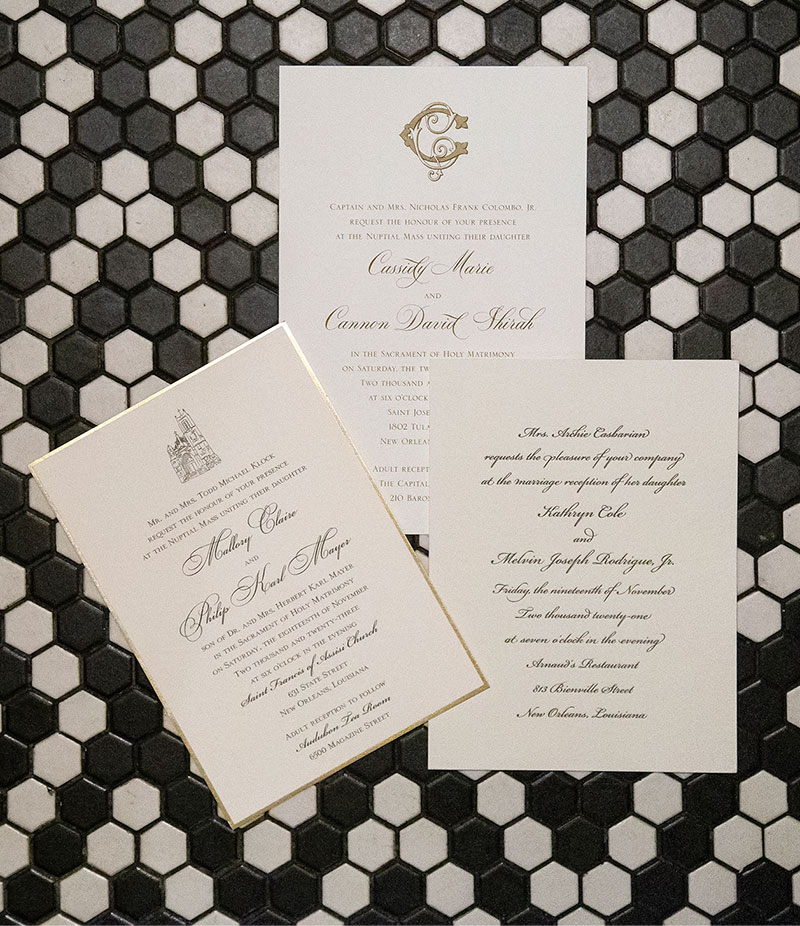 C
Captain and Mrs. Nicholas Frank Colombo, Jr.
request the honour of your presence
at the Nuptial Mass uniting their daughter
Cassidy Marie
and
Cannon David Shirah
in the Sacrament of Holy Matrimony
on Saturday, the
Two thousand
at six o'clock
Saint
1802
New Orleans
Adult
The Capital
210
Mr. and Mrs. Todd Michael Klock
request the honour of your presence
at the Nuptial Mass uniting their daughter
Mallory Claire
and
Philip Karl Mayer
son of Dr. and Mrs. Herbert Karl Mayer
in the Sacrament of Holy Matrimony
on Saturday, the eighteenth of November
Two thousand and twenty-three
at six o'clock in the evening
Saint Francis of Assisi Church
631 State Street
New Orleans, Louisiana
Adult reception to follow
Audubon Tea Room
6500 Magazine Street
Mrs. Archie Casbarian
requests the pleasure of your company
at the marriage reception of her daughter
Kathryn Cole
and
Melvin Joseph Rodrigue, Jr.
Friday, the nineteenth of November
Two thousand twenty-one
at seven o'clock in the evening
Arnaud's Restaurant
813 Bienville Street
New Orleans, Louisiana